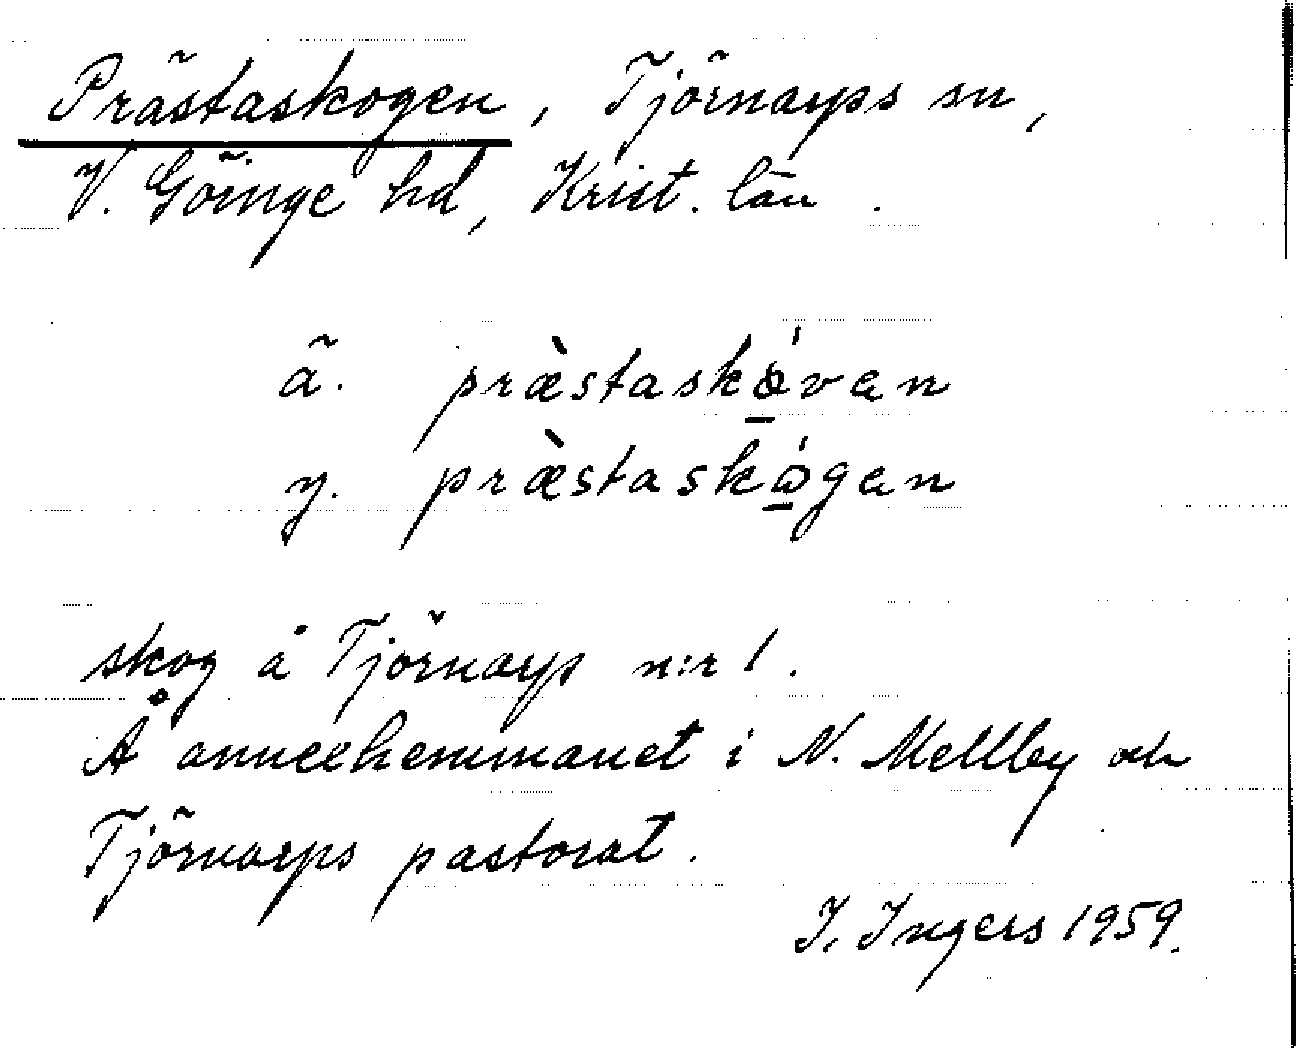 Prästaskogen, Tjörnarps sn,
V. Göinge hd, Krist. län.
ä. præ̀staskǿ̱van
y. præ̀staskǿ̱gen
skog å Tjörnarps n:r 1.
Å annexhemmanet i N. Mellby och
Tjörnarps pastorat.
I. Ingers 1959.